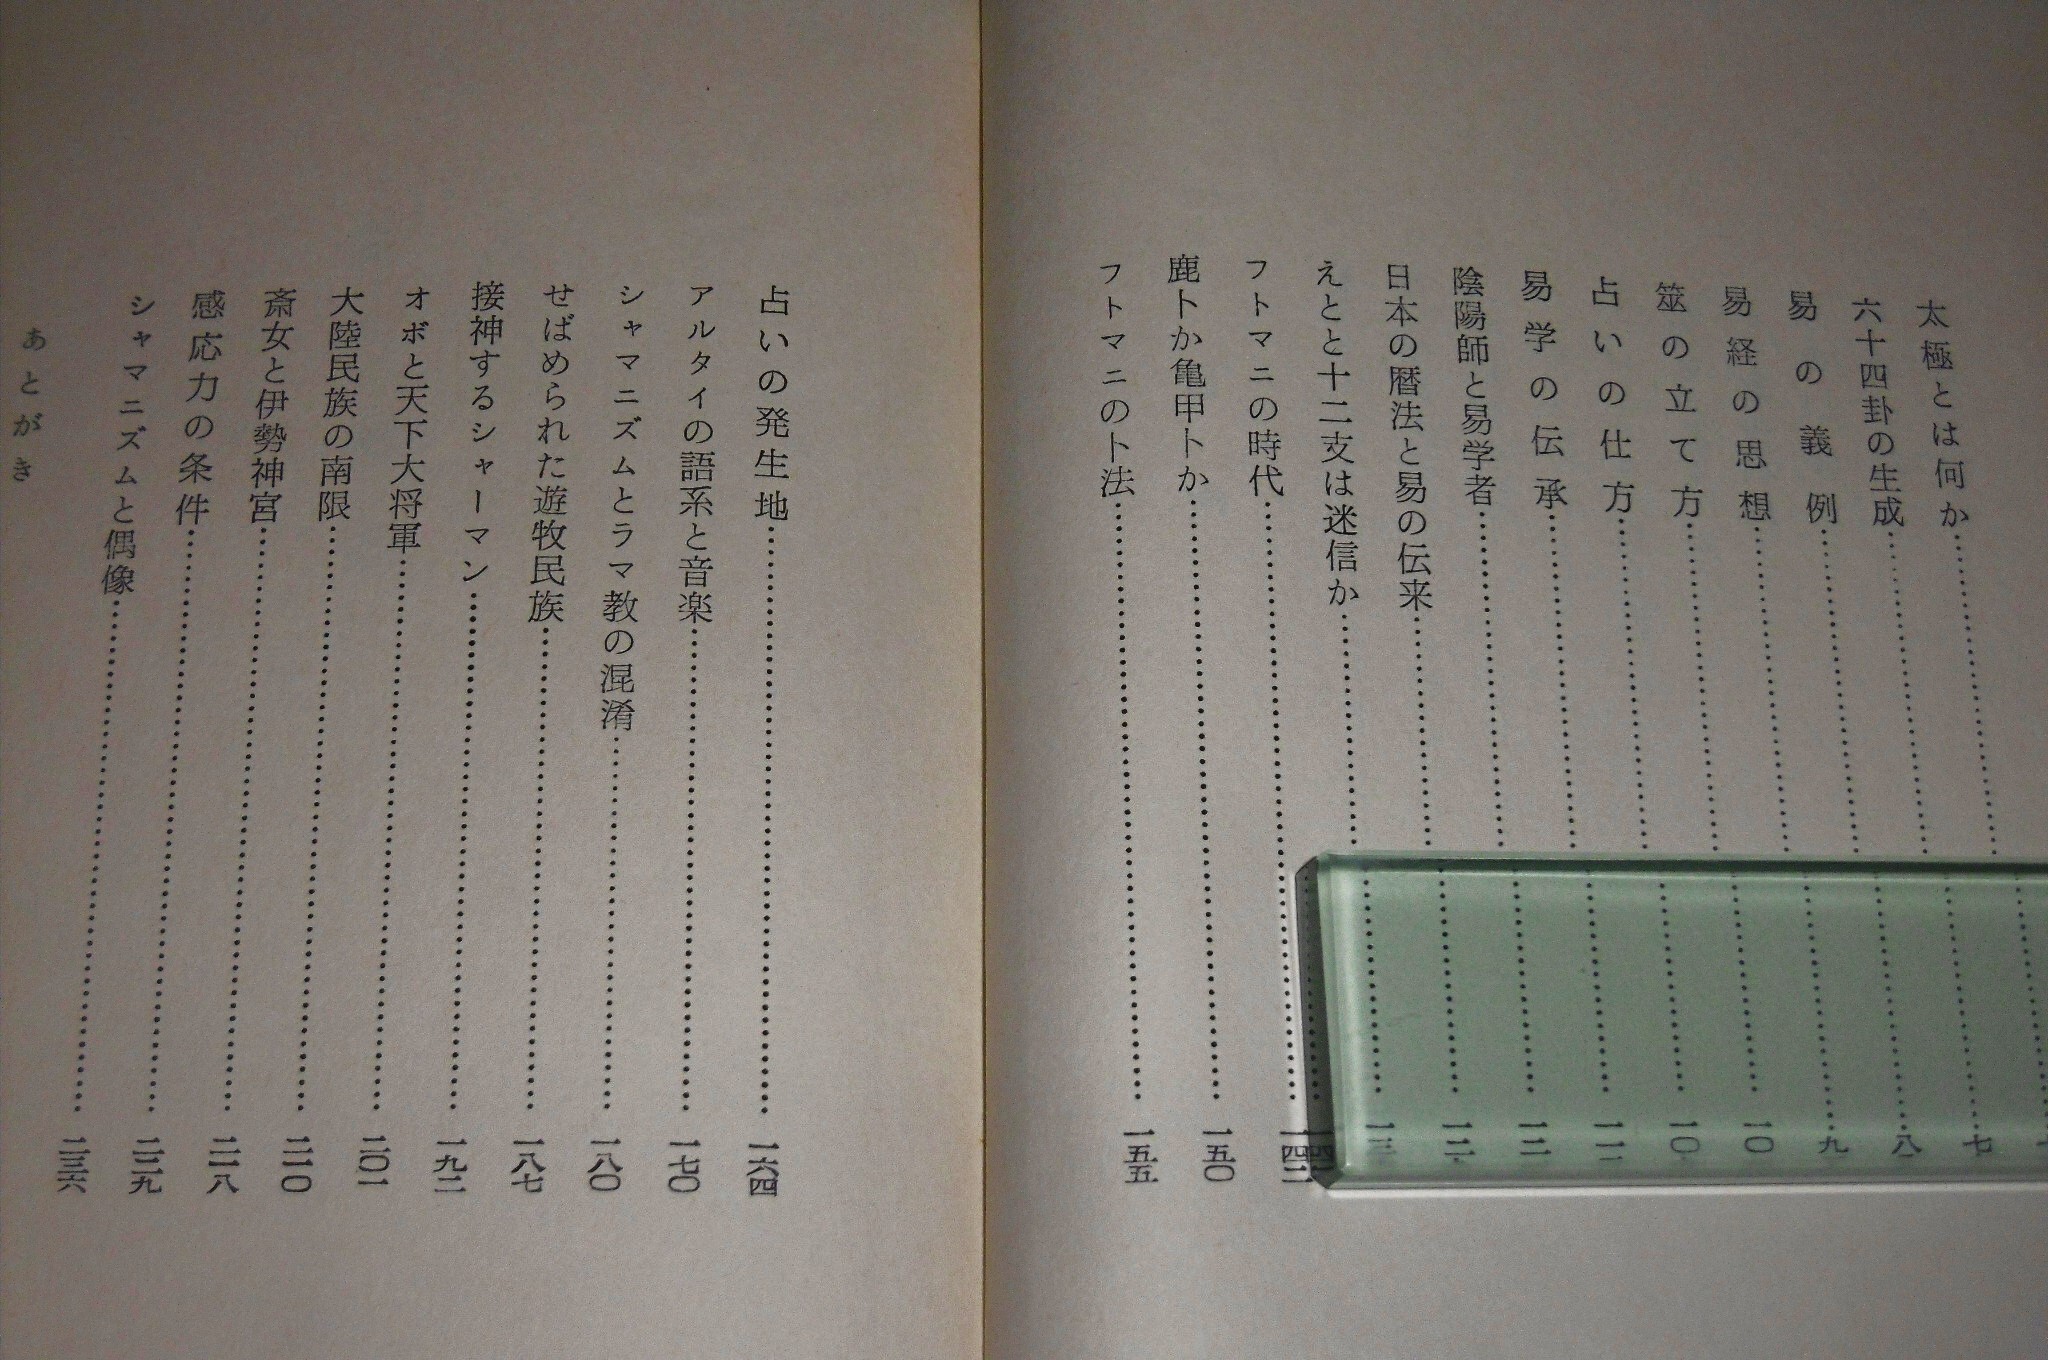 太極とは何か
六十四卦の生成
易の義例
易経の思想
筮の立て方
占いの仕方
易学の伝承
陰陽師と易学者
日本の暦法と易の伝来
えとと十二支は迷信か
フトマニの時代……一四二
鹿卜か亀甲卜か……一五〇
フトマニの卜法……一五五
占いの発生地……一六四
アルタイの語系と音楽……一七〇
シャマニズムとラマ教の混淆……一八〇
せばめられた遊牧民族……一八七
接神するシャーマン……一九二
オボと天下大将軍……二〇一
大陸民族の南限……二一〇
斎女と伊勢神宮……二一八
感応力の条件……二二九
シャマニズムと偶像……二三六
あとがき